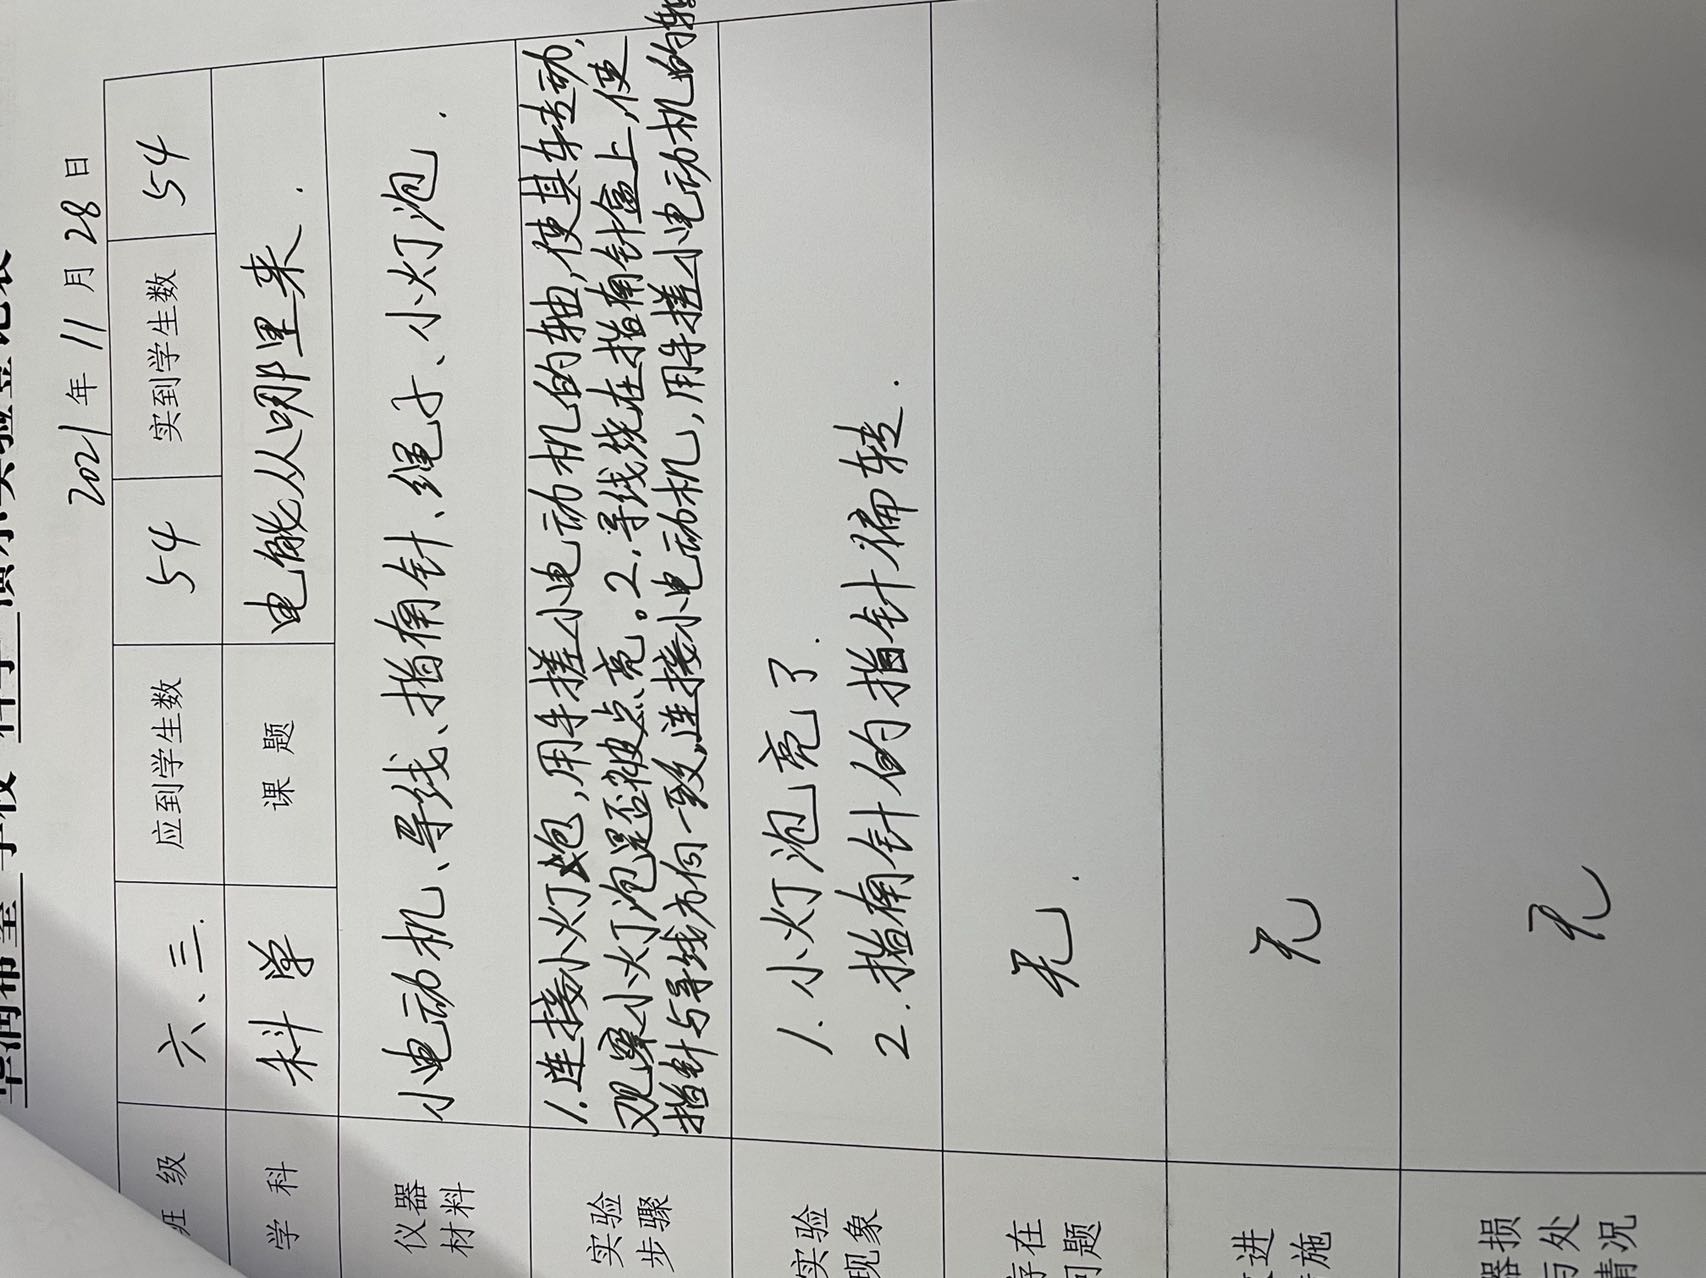 华润希望 学校 科学 演示实验登记表
2021年11月28日
班 级 六、三. 应到学生数 54 实到学生数 54
学 科 科学 课 题 电能从哪里来.
仪器材料 小电动机、导线、指南针、绳子、小灯泡.
实验步骤 1.连接小灯炮,用手搓小电动机的轴,使其转动,
观察小灯泡是否被点亮。2.导线绕在指南针盒上,使
指针与导线方向一致,连接小电动机,用手搓小电动机的转
实验现象 1.小灯泡亮了.
2.指南针的指针偏转.
存在问题 无.
改进措施 无
器损与处情况 无